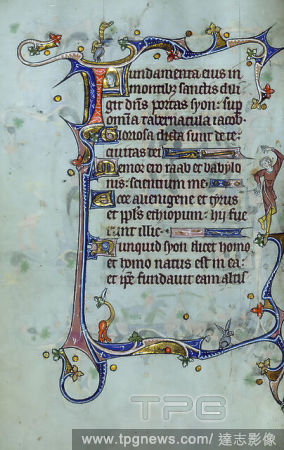 Fundamenta eius in
montib; sanctis dili
git dñs portas syon: sup
omia tabernacula iacob:
Gloriosa dicta sunt de te:
ciuitas dei
Memor ero raab et babylo
nis: scientium me
Ecce alienigene et tyrus
et ppls ethiopum: hij fue
runt illic
Nunquid syon dicet homo
et homo natus est in ea:
et ipe fundauit eam altis
TPG
www.tpgnews.com / 達志影像